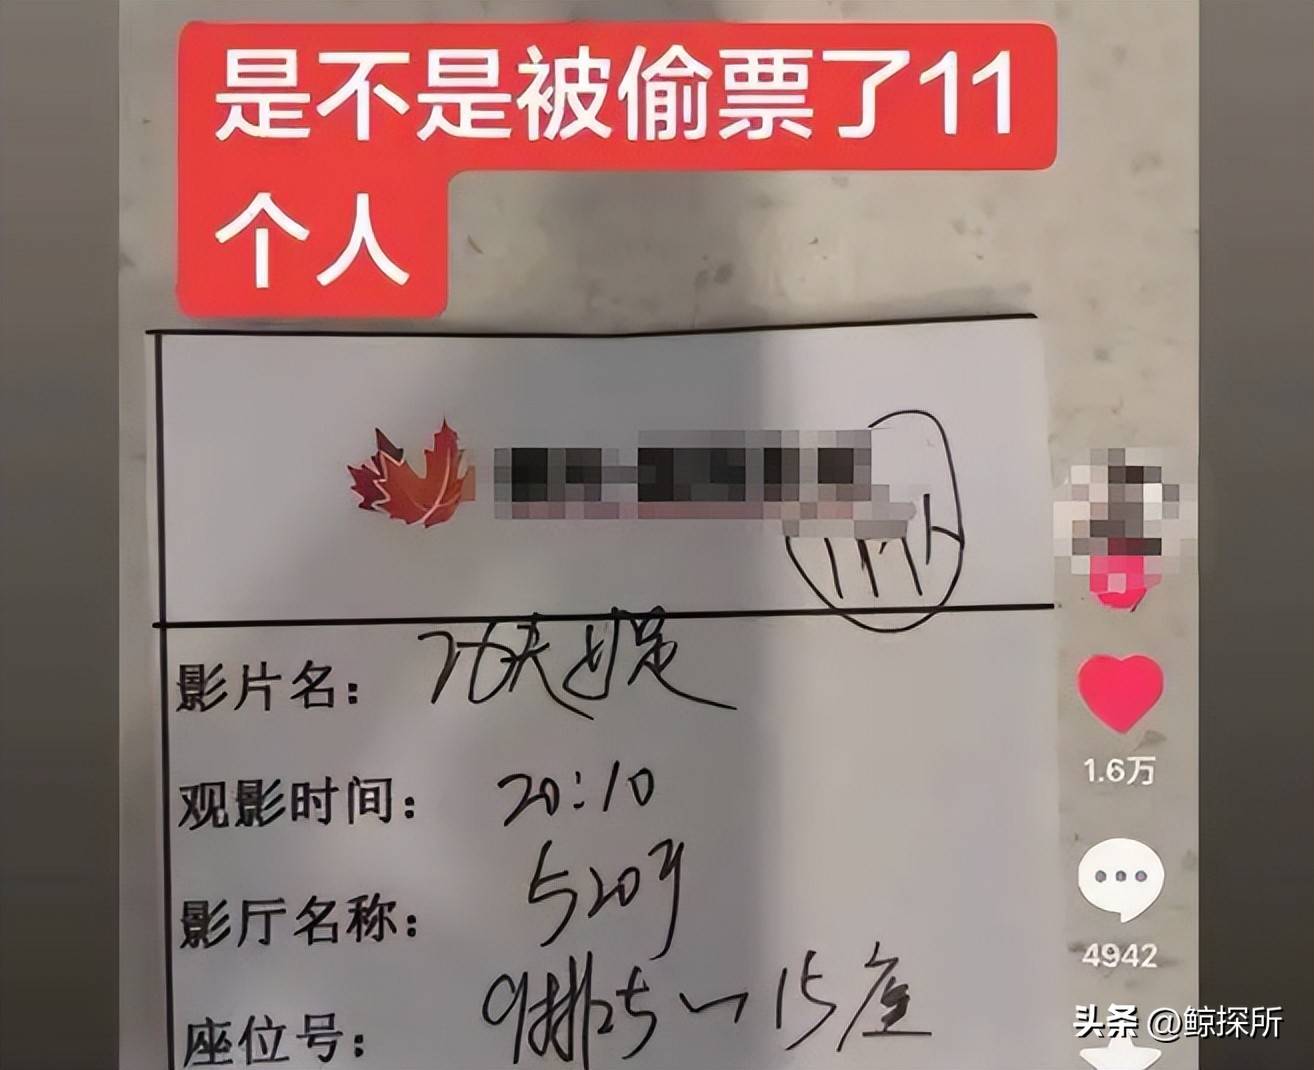 是不是被偷票了11
个人
影片名：
观影时间： 20:10
1.6万
影厅名称： 520厅
4942
座位号： 9排5-15座
头条 @鲸探所